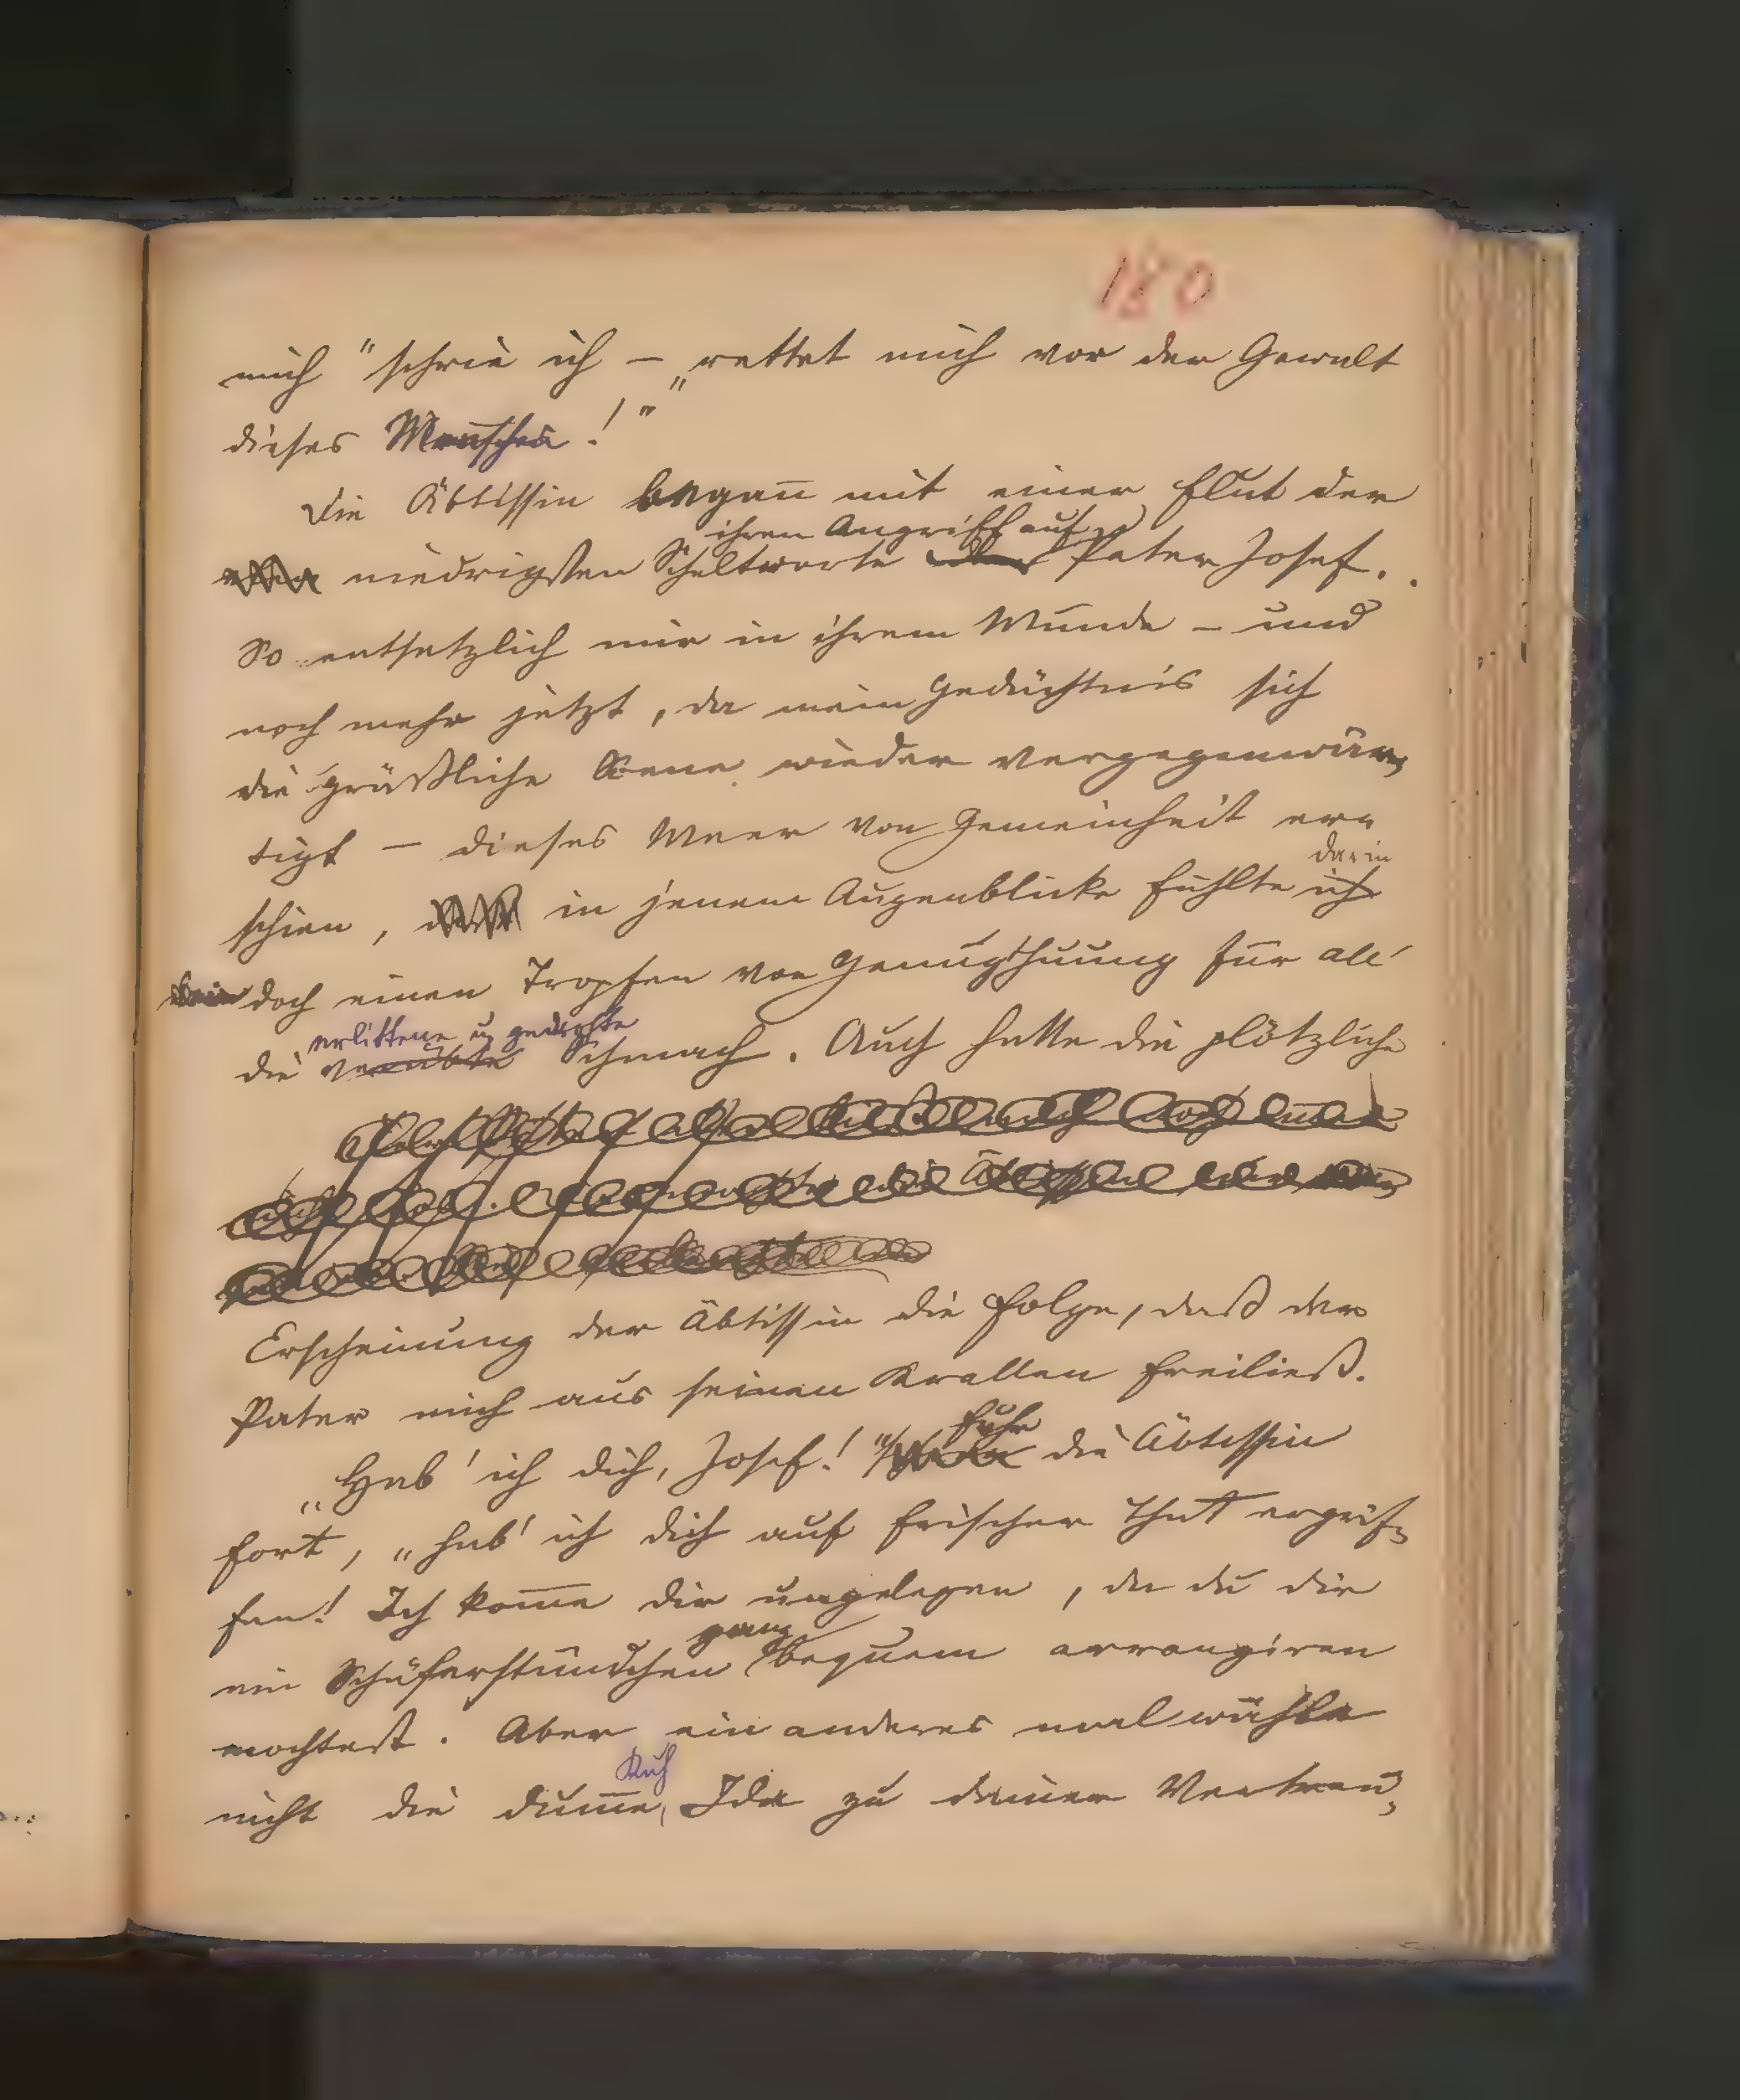 180
mich" schrie ich — „rettet mich vor der Gewalt
dieses Menschen!"
Die Äbtissin begann mit einer Flut der
ihren Angriff auf
niedrigsten Scheltworte Pater Josef.
So entsetzlich mir in ihrem Munde – und
noch mehr jetzt, da mein Gedächtnis sich
die gräßliche Scene wieder vergegenwär-
tigt — dieses Meer von Gemeinheit er-
darin
schien, in jenem Augenblicke fühlte ich
doch einen Tropfen von Genugthuung für all'
erlittene u gedrohte
die verübte Schmach. Auch hatte die plötzliche
Erscheinung der Äbtissin die Folge, daß der
Pater mich aus seinen Krallen freiließ.
fuhr
„Hab' ich dich, Josef!" die Äbtissin
fort, „hab' ich dich auf frischer That ergrif-
fen! Ich komme dir ungelegen, da du dir
ganz
ein Schäferstündchen bequem arrangiren
mochtest. Aber ein anderes mal wähle
Kuh
nicht die dumme, Ida zu deiner Vertrau-